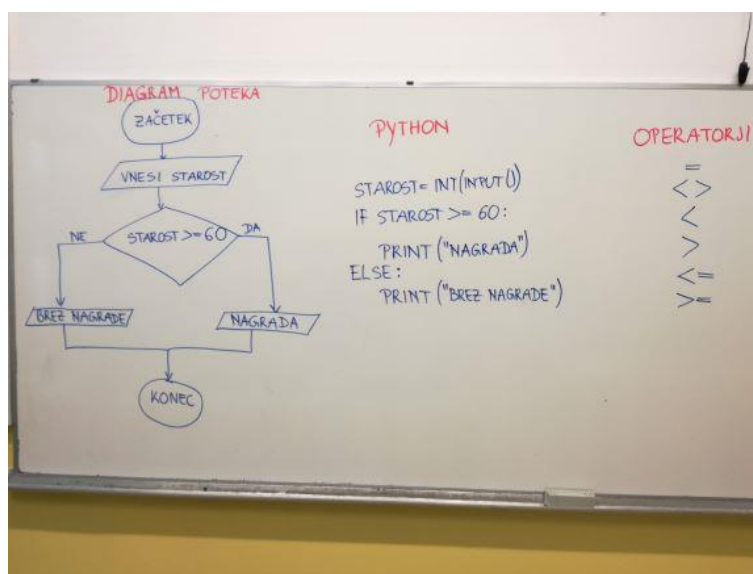 DIAGRAM POTEKA
ZAČETEK
VNESI STAROST
NE
STAROST >= 60
DA
BREZ NAGRADE
NAGRADA
KONEC
PYTHON
STAROST = INT(INPUT())
IF STAROST >= 60:
PRINT ("NAGRADA")
ELSE:
PRINT ("BREZ NAGRADE")
OPERATORJI
=
<>
<
>
<=
>=